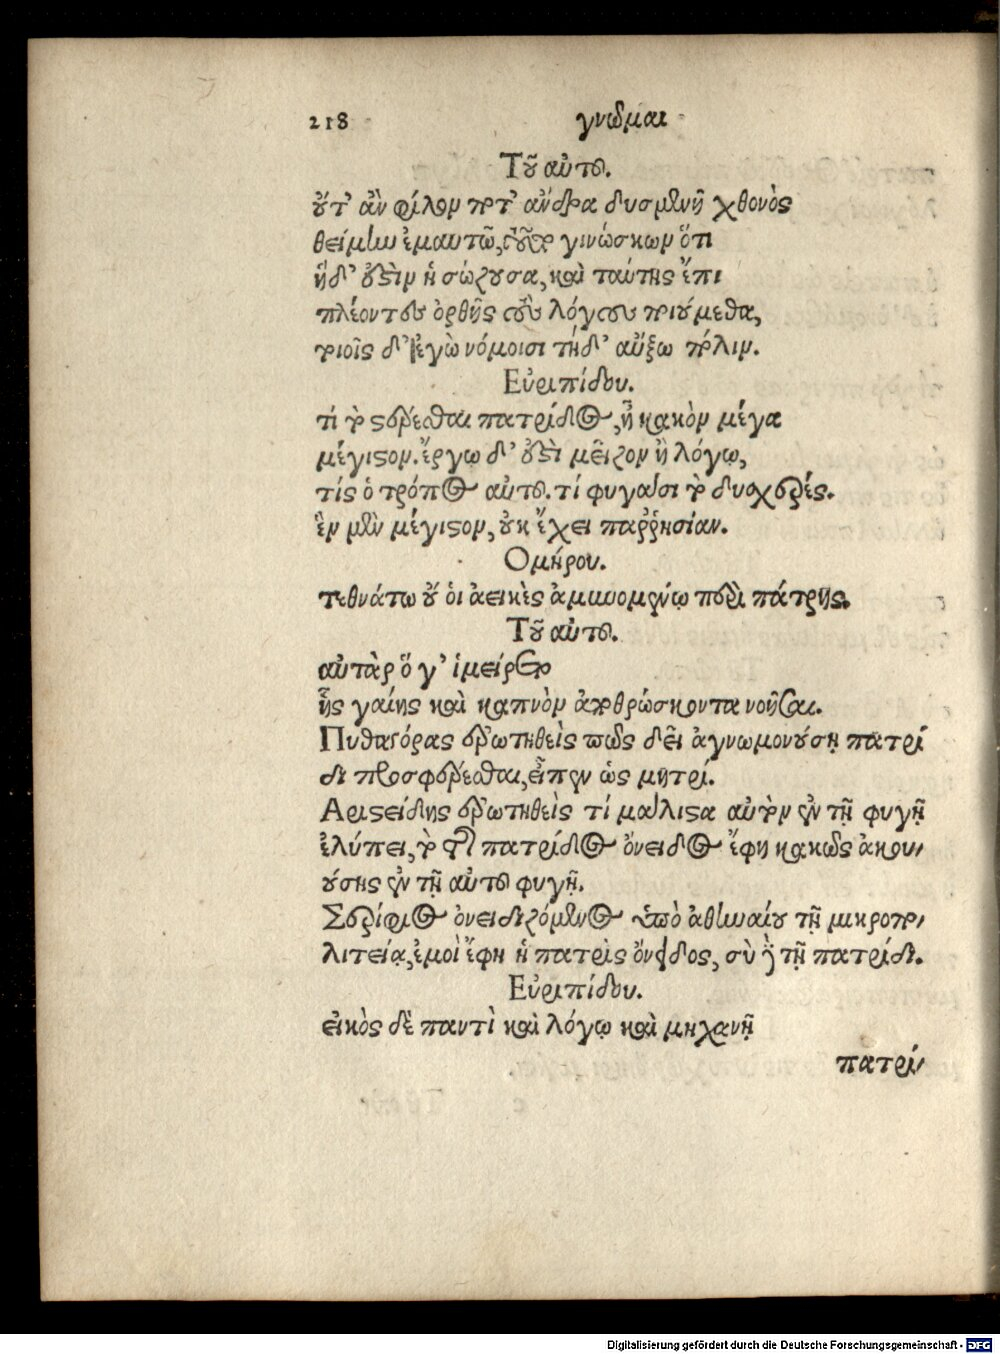 218 γνῶμαι
Τοῦ αὐτοῦ.
οὔτ' ἂν φίλον ποτ' ἄνδρα δυσμενῆ χθονὸς
θείμην ἐμαυτῷ, τοῦτο γινώσκων ὅτι
ἥδ' ὅστιν ἡ σώζουσα, καὶ ταύτης ἔπι
πλέοντες ὀρθῆς τοὺς λόγους ποιούμεθα,
τοιοῖς δ' ἐγὼ νόμοισι τήνδ' αὔξω πόλιν.
Εὐριπίδου.
τί τὸ στέρεσθαι πατρίδος, ἦ κακὸν μέγα
μέγιστον. ἔργῳ δ' ἐστὶ μεῖζον ἢ λόγῳ,
τίς ὁ τρόπος αὐτοῦ. τί φυγάσι τὸ δυσχερές.
ἓν μὲν μέγιστον, οὐκ ἔχει παῤῥησίαν.
Ομήρου.
τεθνάτω οὔ οἱ ἀεικὲς ἀμυνομένῳ περὶ πάτρης.
Τοῦ αὐτοῦ.
αὐτὰρ ὅ γ' ἱμείρει
ἧς γαίης καὶ καπνὸν ἀποθρώσκοντα νοῆσαι.
Πυθαγόρας ἐρωτηθεὶς πῶς δεῖ ἀγνωμονούσῃ πατρί
δι προσφέρεσθαι, εἶπεν ὡς μητρί.
Αριστείδης ἐρωτηθεὶς τί μάλιστα αὐτὸν ἐν τῇ φυγῇ
ἐλύπει, τὸ τῆς πατρίδος ὄνειδος ἔφη κακῶς ἀκου-
ούσης ἐν τῇ αὐτοῦ φυγῇ.
Σερίφιος ὀνειδιζόμενος ὑπὸ ἀθηναίου τῇ μικροπο-
λιτείᾳ, ἐμοὶ ἔφη ἡ πατρὶς ὄνειδος, σὺ δὲ τῇ πατρίδι.
Εὐριπίδου.
εἰκὸς δὲ παντὶ καὶ λόγῳ καὶ μηχανῇ
πατρί-
Digitalisierung gefördert durch die Deutsche Forschungsgemeinschaft - DFG